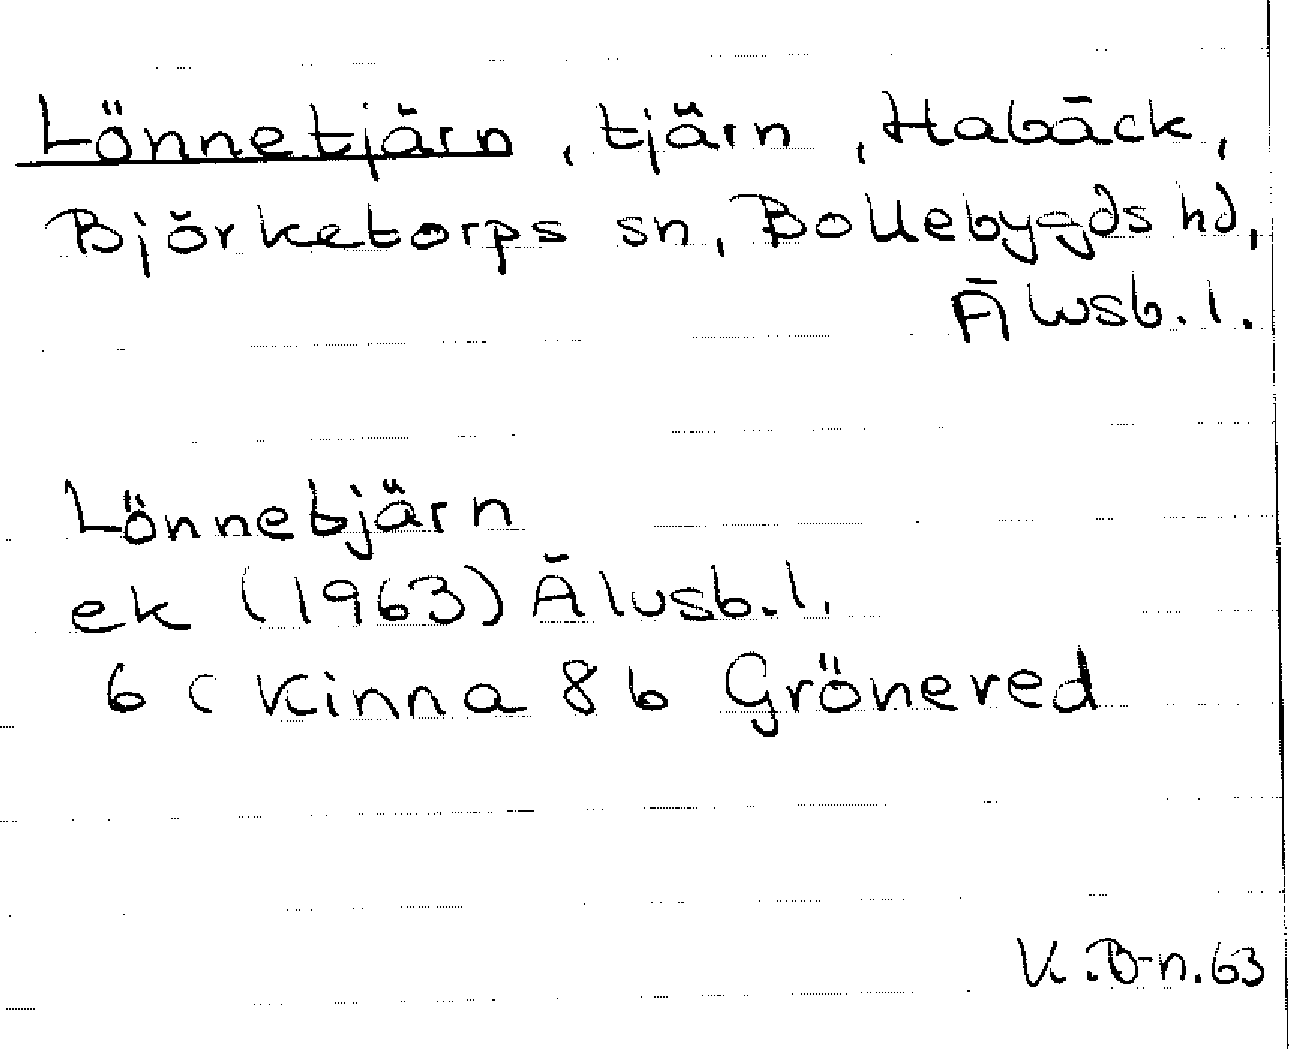 Lönnetjärn, tjärn, Habäck,
Björketorps sn, Bollebygds hd,
Älvsb. l.
Lönnetjärn
ek (1963) Älvsb. l.
6 C Kinna 8 b Grönered
K. B-n. 63